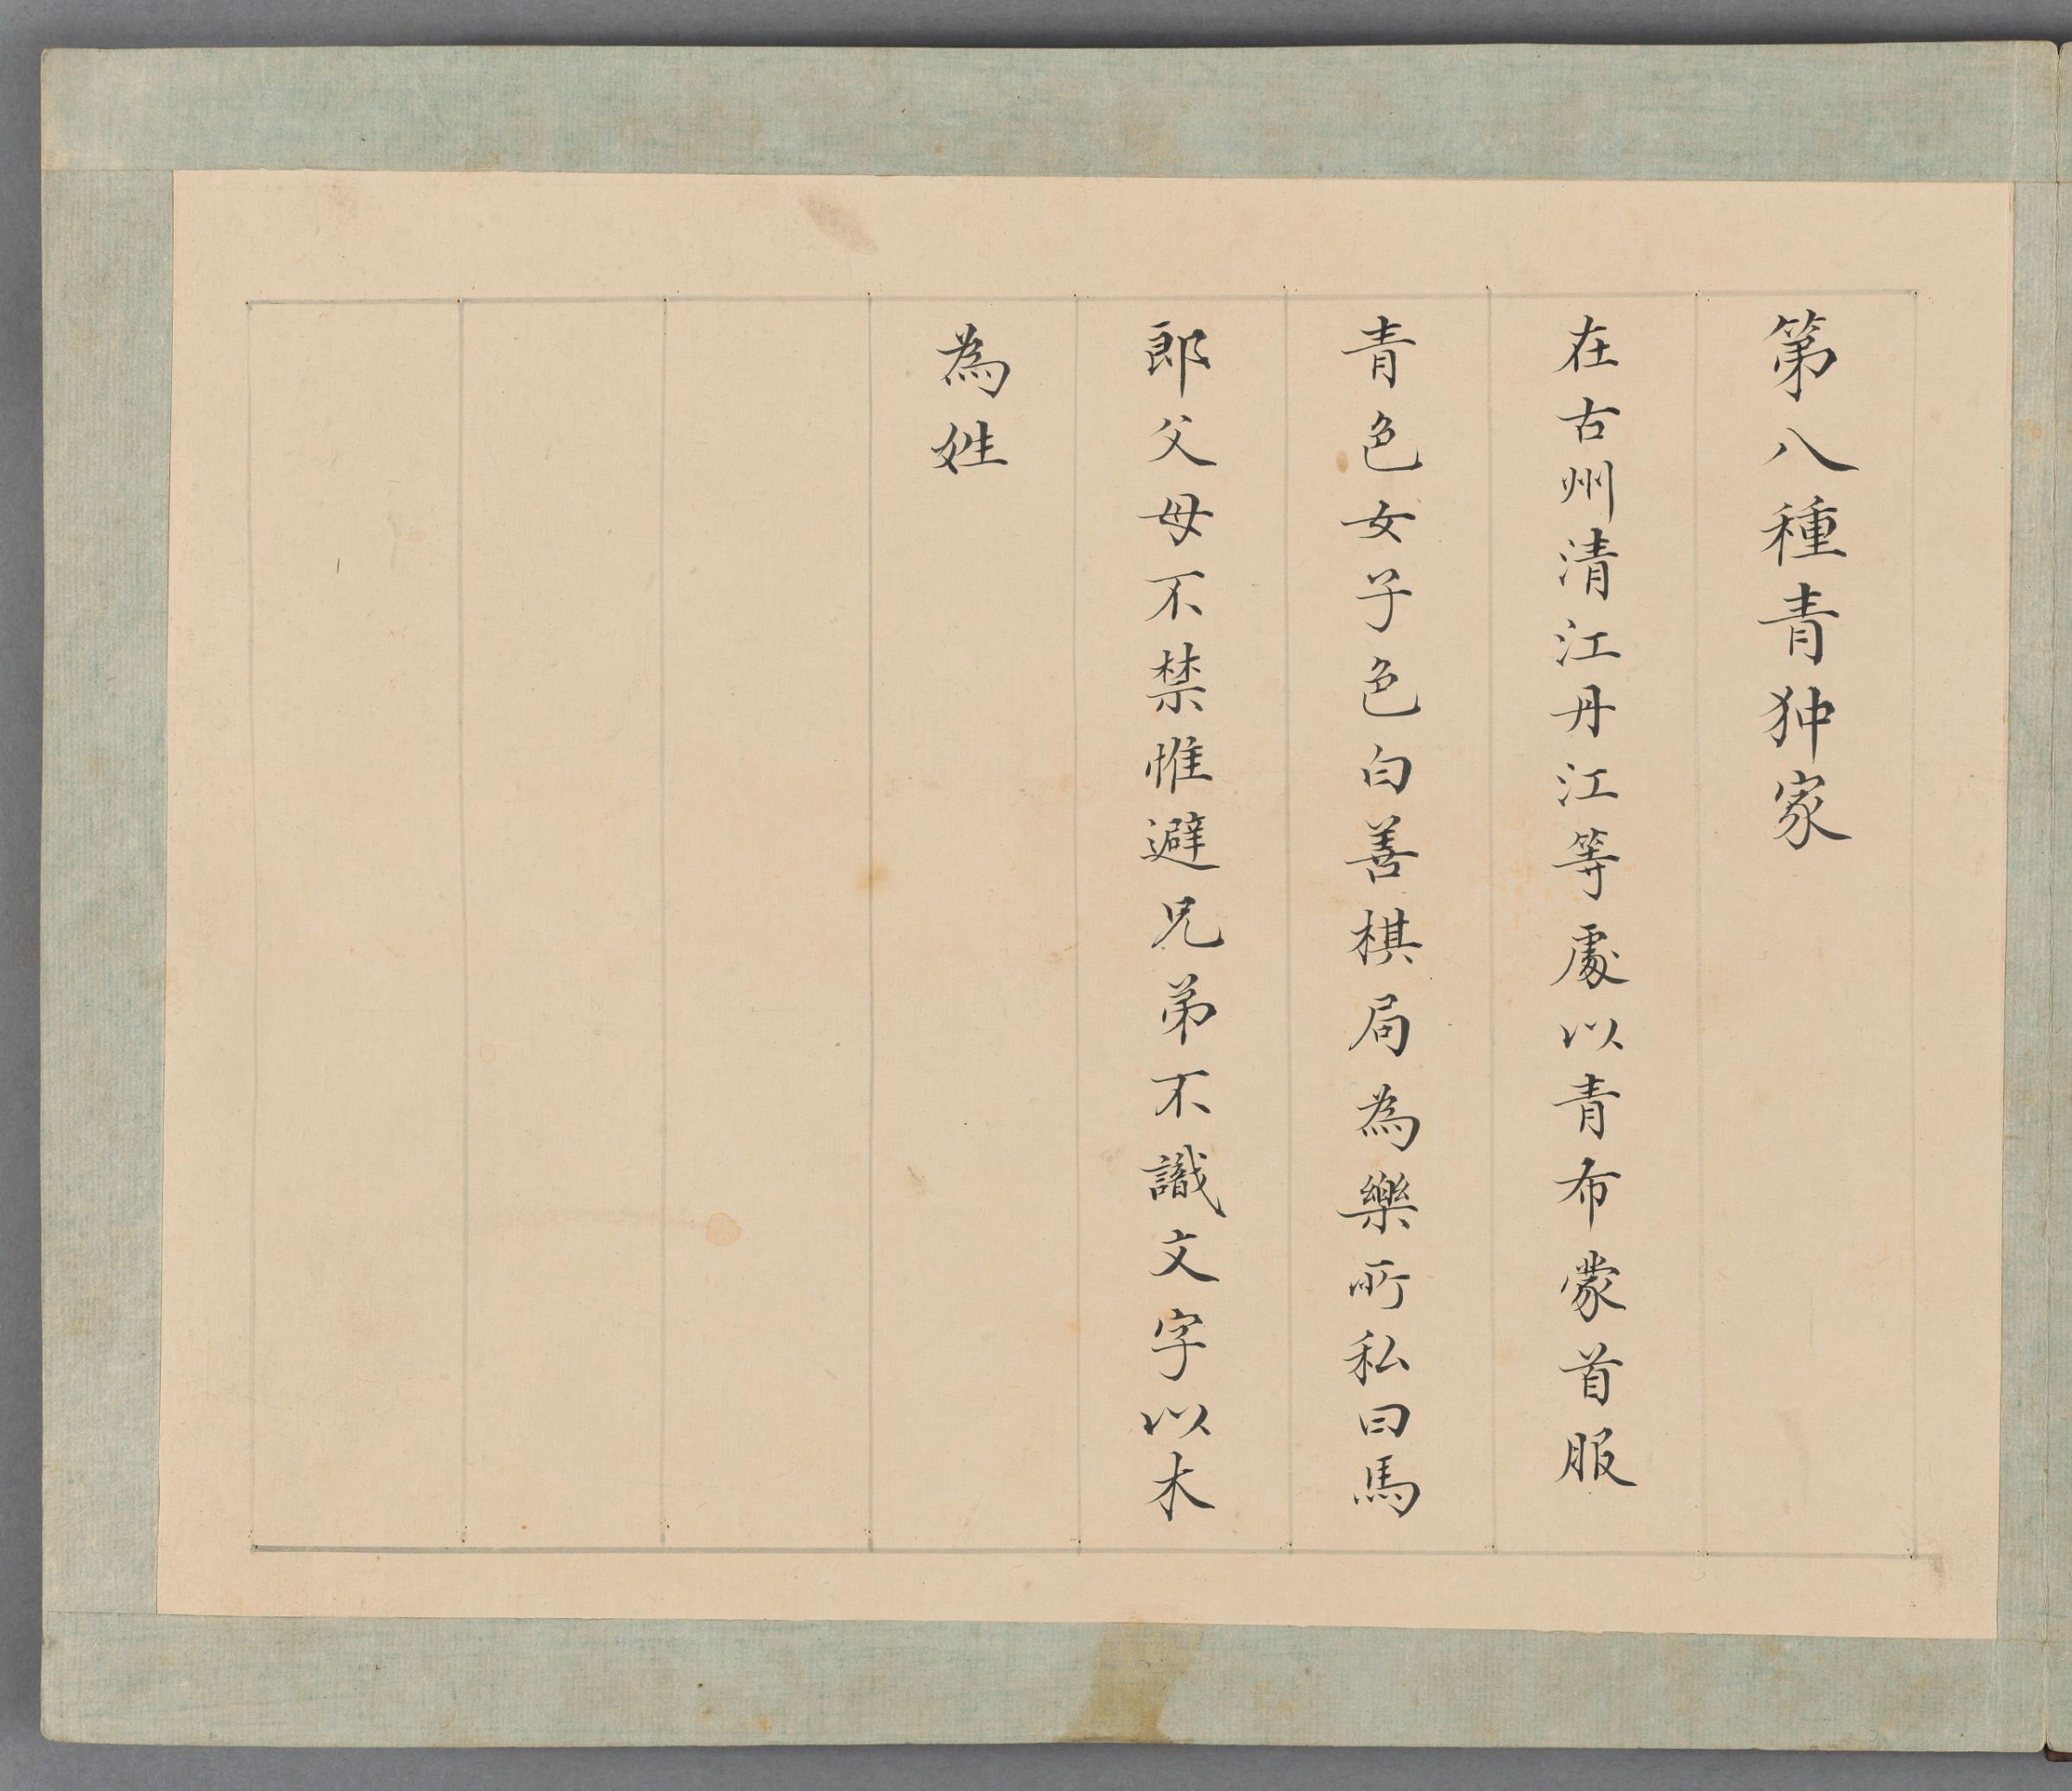 第八種青狆家
在古州清江丹江等處以青布蒙首服
青色女子色白善棋局為樂所私曰馬
郎父母不禁惟避兄弟不識文字以木
為姓